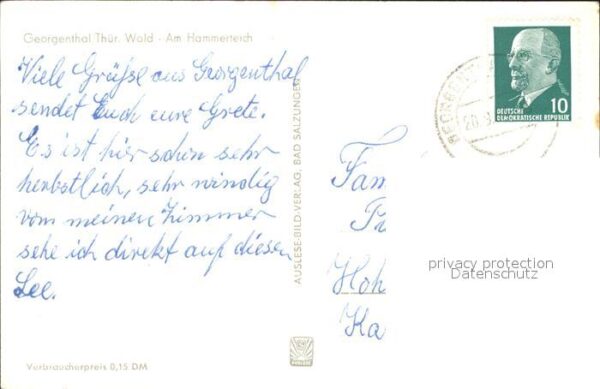 Georgenthal Thür. Wald - Am Hammerteich
Viele Grüße aus Georgenthal
sendet Euch eure Grete.
Es ist hier schon sehr
herbstlich, sehr windig
vom meinen Zimmer
sehe ich direkt auf diesen
See.
Verbraucherpreis 0,15 DM
AUSLESE-BILD-VERLAG, BAD SALZUNGEN
10
DEUTSCHE
DEMOKRATISCHE REPUBLIK
20.9.
Fam
Hoh
Ka
privacy protection
Datenschutz